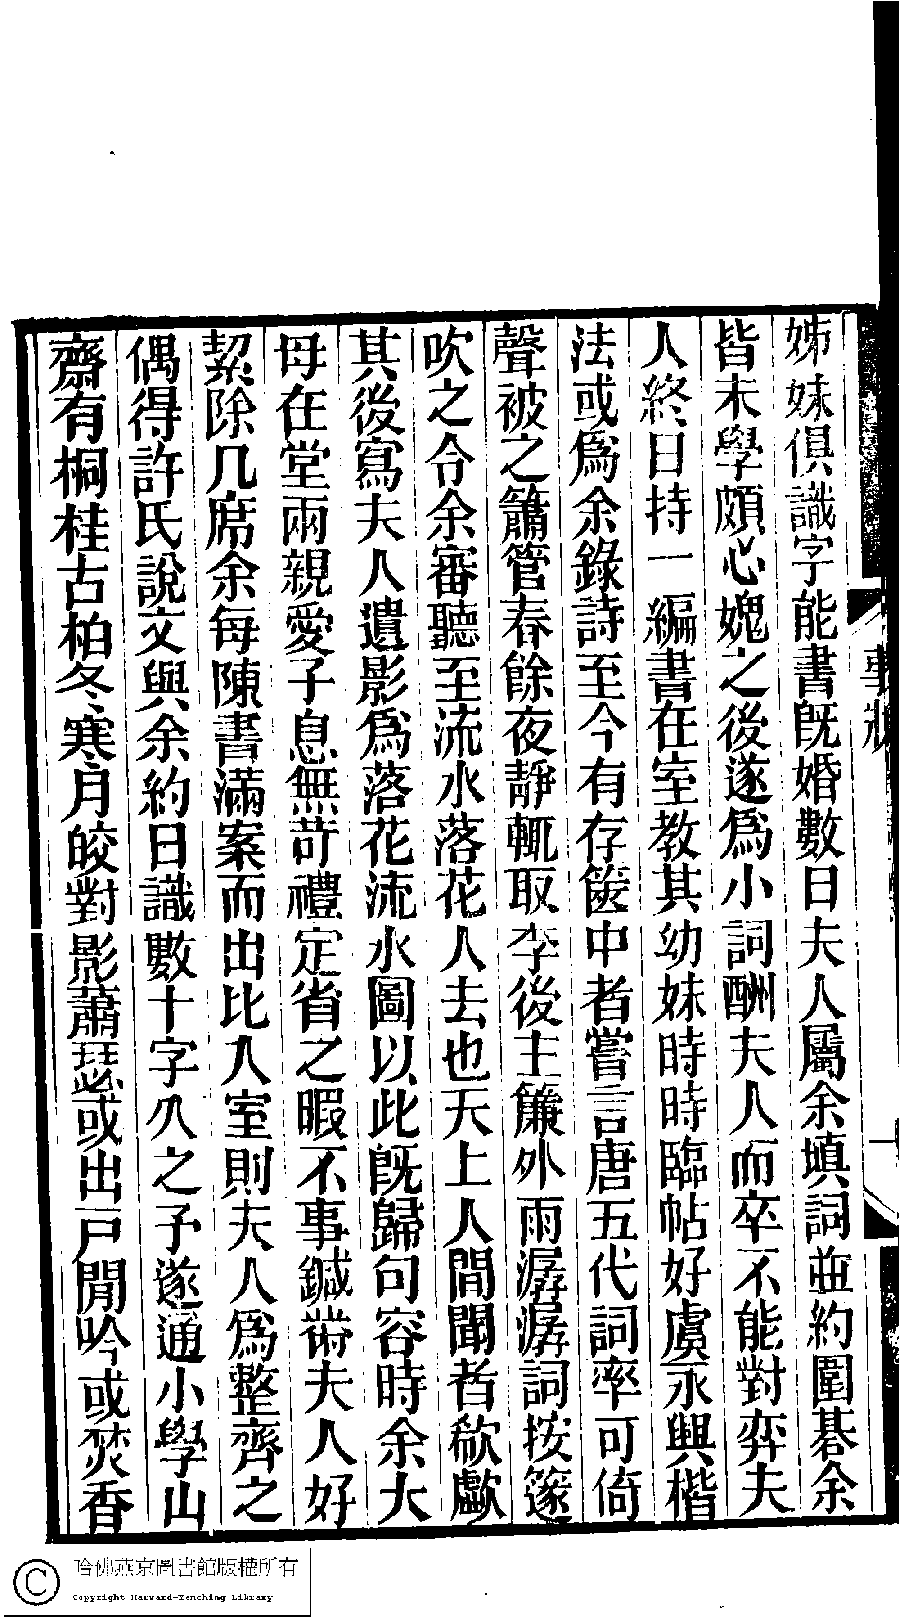 姊妹俱識字能書旣婚數日夫人屬余塡詞並約圍棊余
皆未學頗心媿之後遂爲小詞酬夫人而卒不能對弈夫
人終日持一編書在室教其幼妹時時臨帖好虞永興楷
法或爲余錄詩至今有存篋中者嘗言唐五代詞率可倚
聲被之簫管春餘夜靜輒取李後主簾外雨潺潺詞按篴
吹之令余審聽至流水落花人去也天上人間聞者欷歔
其後寫夫人遺影爲落花流水圖以此旣歸句容時余大
母在堂兩親愛子息無苛禮定省之暇不事鍼黹夫人好
絜除几席余每陳書滿案而出比入室則夫人爲整齊之
偶得許氏說文與余約日識數十字久之予遂通小學山
齋有桐桂古柏冬寒月皎對影蕭瑟或出戶閒吟或焚香
事狀
一
哈佛燕京圖書館版權所有
Copyright Harvard-Yenching Library